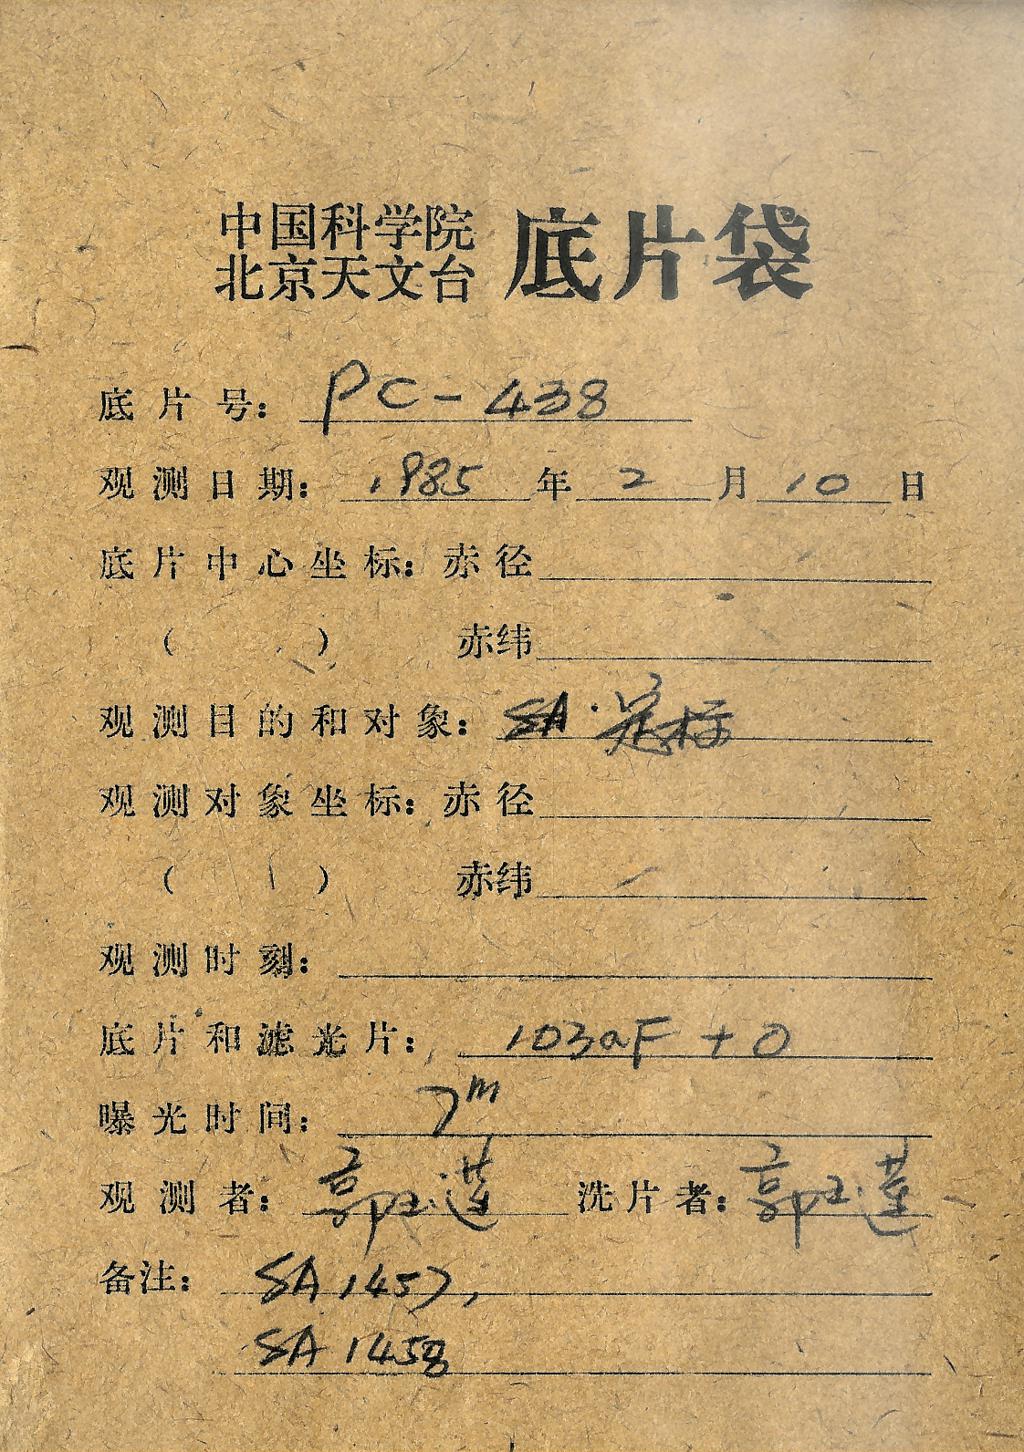 中国科学院
北京天文台 底片袋
底片号: PC-438
观测日期: 1985 年 2 月 10 日
底片中心坐标: 赤径
( ) 赤纬
观测目的和对象: SA·定标
观测对象坐标: 赤径
( ) 赤纬
观测时刻:
底片和滤光片: 103aF + O
曝光时间: 7m
观测者: 郭玉莲 洗片者: 郭玉莲
备注: SA 1457,
SA 1458